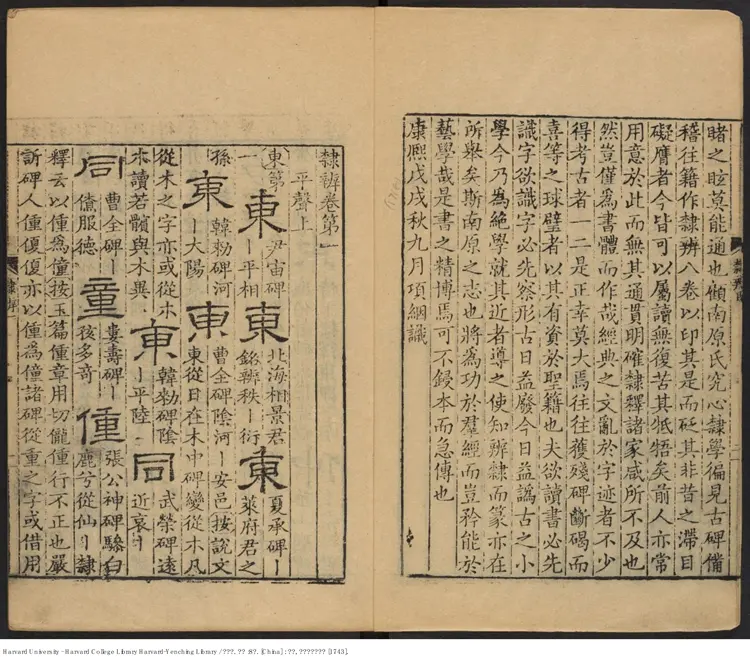 睹之眩莫能通也顧南原氏究心隸學徧見古碑備
稽往籍作隸辨八卷以印其是而砭其非昔之滯目
礙膺者今皆可以屬讀無復苦其牴牾矣前人亦常
用意於此而無其通貫明確隸釋諸家咸所不及也
然豈僅為書體而作哉經典之文亂於字迹者不少
得考古者一二是正幸莫大焉往往獲殘碑斷碣而
喜等之球璧者以其有資於聖籍也夫欲讀書必先
識字欲識字必先察形古日益廢今日益譌古之小
學今乃為絶學就其近者導之使知辨隸而篆亦在
所舉矣斯南原之志也將為功於羣經而豈矜能於
藝學哉是書之精博焉可不鋟本而急傳也
康熙戊戌秋九月項絪識
隸辨卷第一
平聲上
東第一 東 尹宙碑丨平相 東 北海相景君銘辨秩丨衍 東 夏承碑丨萊府君之
孫 東 韓勑碑河丨大陽 東 曹全碑陰河丨安邑按說文東從日在木中碑變從木凡
從木之字亦或從朩朩讀若髕與木異 東 韓勑碑陰丨平陸 同 武榮碑遠近哀丨
同 曹全碑丨僚服德 童 婁壽碑丨孩多奇 僮 張公神碑驂白鹿兮從仙丨隸
釋云以偅為僮按玉篇偅章用切儱偅行不正也嚴
訢碑人偅 亦以偅為僮諸碑從重之字或借用
Harvard University - Harvard College Library Harvard-Yenching Library / ???. ?? :8?. [China] : ??, ??????? [1743].